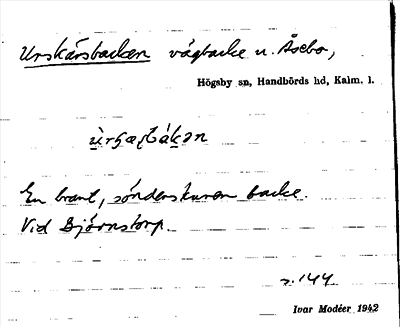 Urskärsbacken vägbacke n. Åsebo,
Högsby sn, Handbörds hd, Kalm. l.
En brant, sönderskuren backe.
Vid Björnstorp.
s. 144
Ivar Modéer 1942